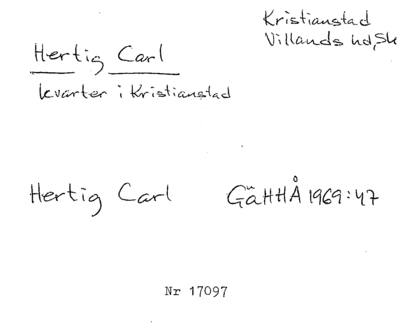 Kristianstad
Villands hd, Sk
Hertig Carl
kvarter i Kristianstad
Hertig Carl GäHHÅ 1969:47
Nr 17097